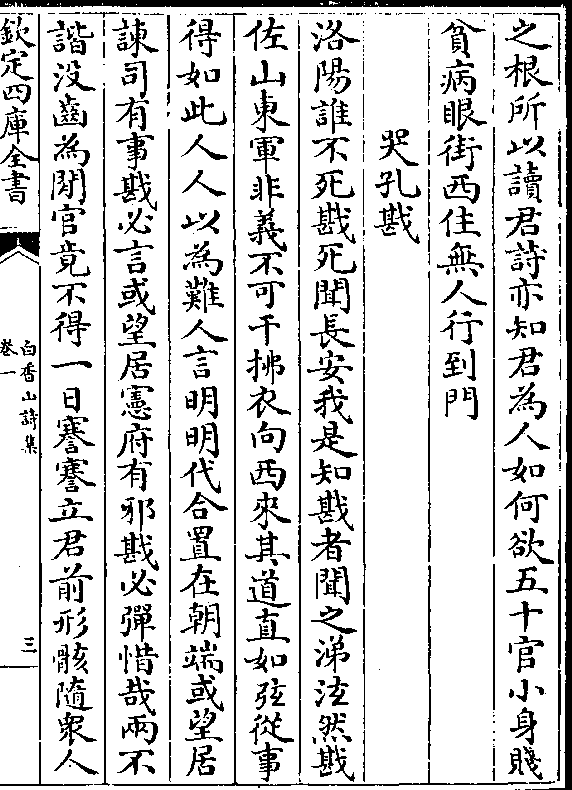 之根所以讀君詩亦知君為人如何欲五十官小身賤
貧病眼街西住無人行到門
哭孔戡
洛陽誰不死戡死聞長安我是知戡者聞之涕泫然戡
佐山東軍非義不可干拂衣向西來其道直如弦從事
得如此人人以為難人言明明代合置在朝端或望居
諫司有事戡必言或望居憲府有邪戡必彈惜哉兩不
諧沒齒為閒官竟不得一日謇謇立君前形骸隨衆人
欽定四庫全書
白香山詩集
卷一
三